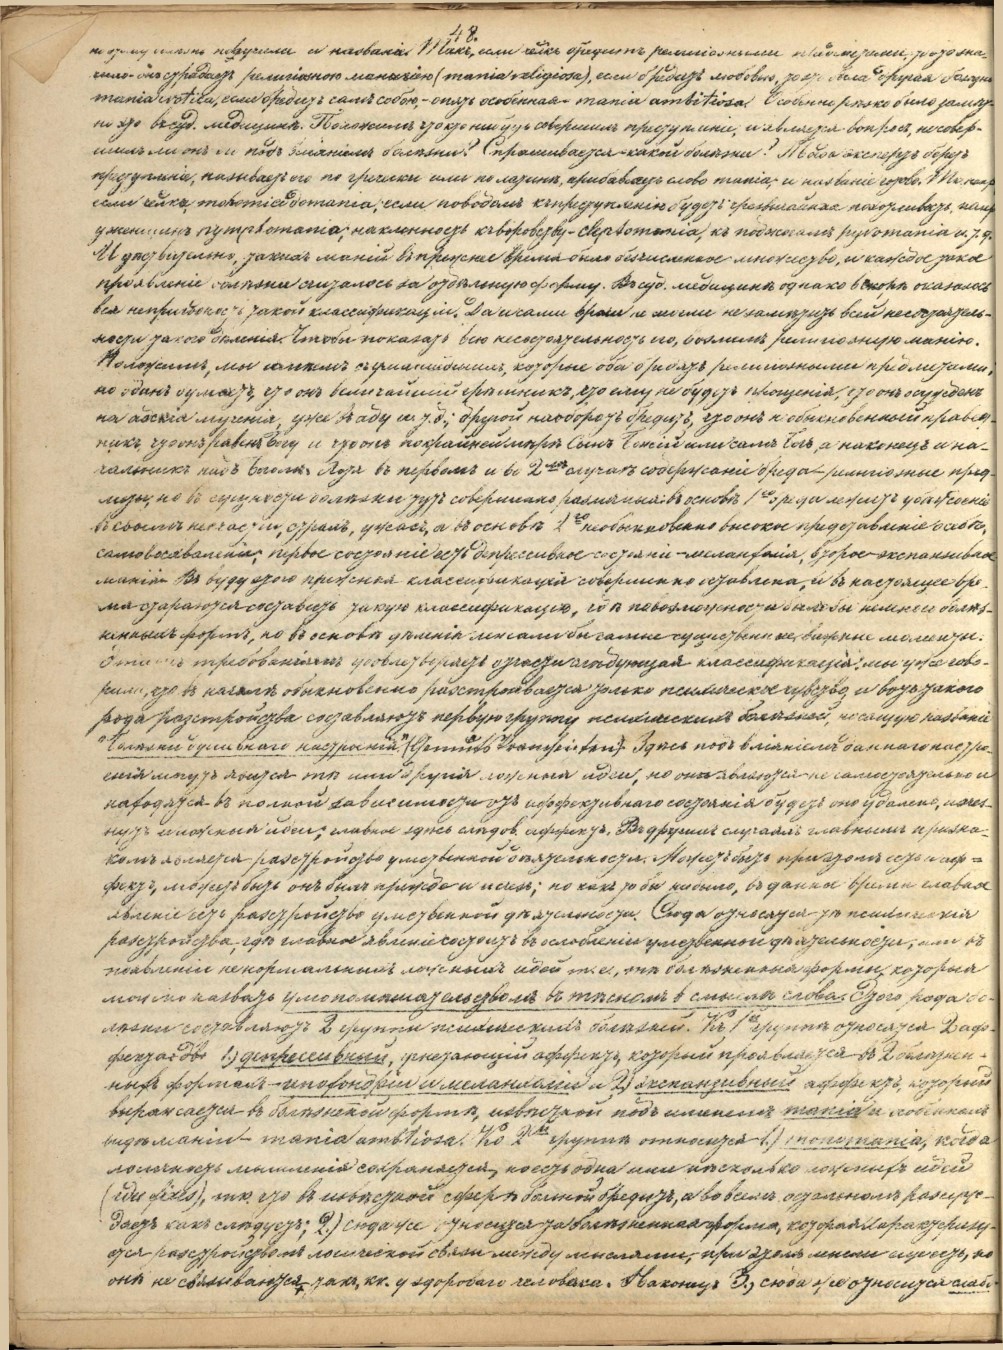 48.
поэтому они получили и названіе. Такъ, если человѣкъ бредитъ религіозными предметами, то это зна-
чило - онъ страдаетъ религіозною маніею (mania religiosa), если бредитъ любовью, то это была другая болѣзнь
mania erotica, если бредитъ самъ собою, - опять особенная - mania ambitiosa. Особенно рѣзко было замѣт-
но это въ суд. медицинѣ. Положимъ что кто нибудь совершилъ преступленіе, и является вопросъ, не совер-
шилъ ли онъ его подъ вліяніемъ болѣзни? Спрашивается - какой болѣзни? Тогда экспертъ беретъ
преступленіе, называетъ его по гречески или по латынѣ, прибавляетъ слово mania, и названіе готово.
если повод. къ преступленію будетъ чрезвычайная похотливость, напр.
у женщинъ nymphomania; наклонность къ воровству - cleptomania, къ поджогамъ pyromania и т. д.
И дѣйствительно, такихъ маній въ прежнее время было безчисленное множество, и каждое такое
проявленіе болѣзни считалось за отдѣльную форму. Въ суд. медицинѣ однако вскорѣ оказалось
вся непригодность такой классификаціи. Да и сами врачи не могли не замѣтить всей несостоятель-
ности такого дѣленія. Чтобы показать всю несостоятельность его, возьмемъ религіозную манію.
Положимъ, мы имѣемъ 2 сумасшедшихъ, которые оба бредятъ религіозными предметами,
но одинъ думаетъ, что онъ величайшій грѣшникъ, что ему не будетъ прощенія, что онъ осужденъ
на адскія мученія, уже въ аду и т. д.; другой наоборотъ бредитъ, что онъ необыкновенный правед-
никъ, что онъ равенъ Богу и что онъ по крайней мѣрѣ Сынъ Божій или самъ Богъ, а наконецъ и на-
чальникъ надъ Богомъ. Хотя въ первомъ и во 2мъ случаѣ содержаніе бреда - религіозные пред-
меты, но въ сущности болѣзни тутъ совершенно различныя: въ основѣ 1го бреда лежитъ убѣжденіе
въ своемъ несчастіи, страхъ, ужасъ, а въ основѣ 2го необыкновенно высокое представленіе о себѣ,
самовосхваленіе; первое состояніе есть депрессивное состояніе - меланхолія, второе - экспансивное
манія. Въ виду этого прежняя классификація совершенно оставлена, и въ настоящее вре-
мя стараются составить такую классификацію, гдѣ по возможности было бы немного болѣз-
ненныхъ формъ, но въ основѣ дѣленія лежали бы самые существенные, важные моменты.
Этимъ требованіямъ удовлетворяетъ отчасти слѣдующая классификація: мы уже гово-
рили, что въ началѣ обыкновенно разстраивается только психическое чувство, и вотъ такого
рода разстройства составляютъ первую группу психическихъ болѣзней, носящую названіе
"Болѣзни душевнаго настроенія" (Gemüths Krankheiten). Здѣсь подъ вліяніемъ даннаго настро-
енія могутъ явиться тѣ или другія ложныя идеи, но онѣ являются не самостоятельно и
находятся въ полной зависимости отъ аффективнаго состоянія будетъ оно удалено, исчез-
нутъ и ложныя идеи; главное здѣсь слѣдов. аффектъ. Въ другихъ случаяхъ главнымъ призна-
комъ является разстройство умственной дѣятельности. Можетъ быть при этомъ есть и аф-
фектъ, можетъ быть онъ былъ прежде и исчезъ; но какъ то бы ни было, въ данное время главное
явленіе есть разстройство умственной дѣятельности. Сюда относятся тѣ психическія
разстройства, гдѣ главное явленіе состоитъ въ ослабленіи умственной дѣятельности, или въ
появленіи ненормальныхъ ложныхъ идей т. е. тѣ болѣзненныя формы, которыя
можно назвать умопомѣшательствомъ въ тѣсномъ смыслѣ слова. Этого рода бо-
лѣзни составляютъ 2 группы психическихъ болѣзней. Къ 1й группѣ относятся 2 аф-
фекта: 1.) депрессивный, угнетающій аффектъ, который проявляется въ 2 болѣзнен-
ныхъ формахъ - ипохондріи и меланхоліи и 2.) экспансивный аффектъ, который
выражается въ болѣзненной формѣ, извѣстной подъ именемъ mania и особымъ
видѣ маніи - mania ambitiosa. Ко 2й группѣ относится 1.) monomania, когда
логичность мышленія сохраняется, но есть одна или нѣсколько ложныхъ идей
(idées fixes), такъ что въ извѣстной сферѣ больной бредитъ, а во всемъ остальномъ разсуж-
даетъ какъ слѣдуетъ; 2.) сюда же относится та болѣзненная форма, которая характеризу-
ется разстройствомъ логической связи между мыслями, при этомъ мысли есть, но
онѣ не связываются такъ, кк. у здороваго человѣка. Наконецъ 3.) сюда же относится слабо-